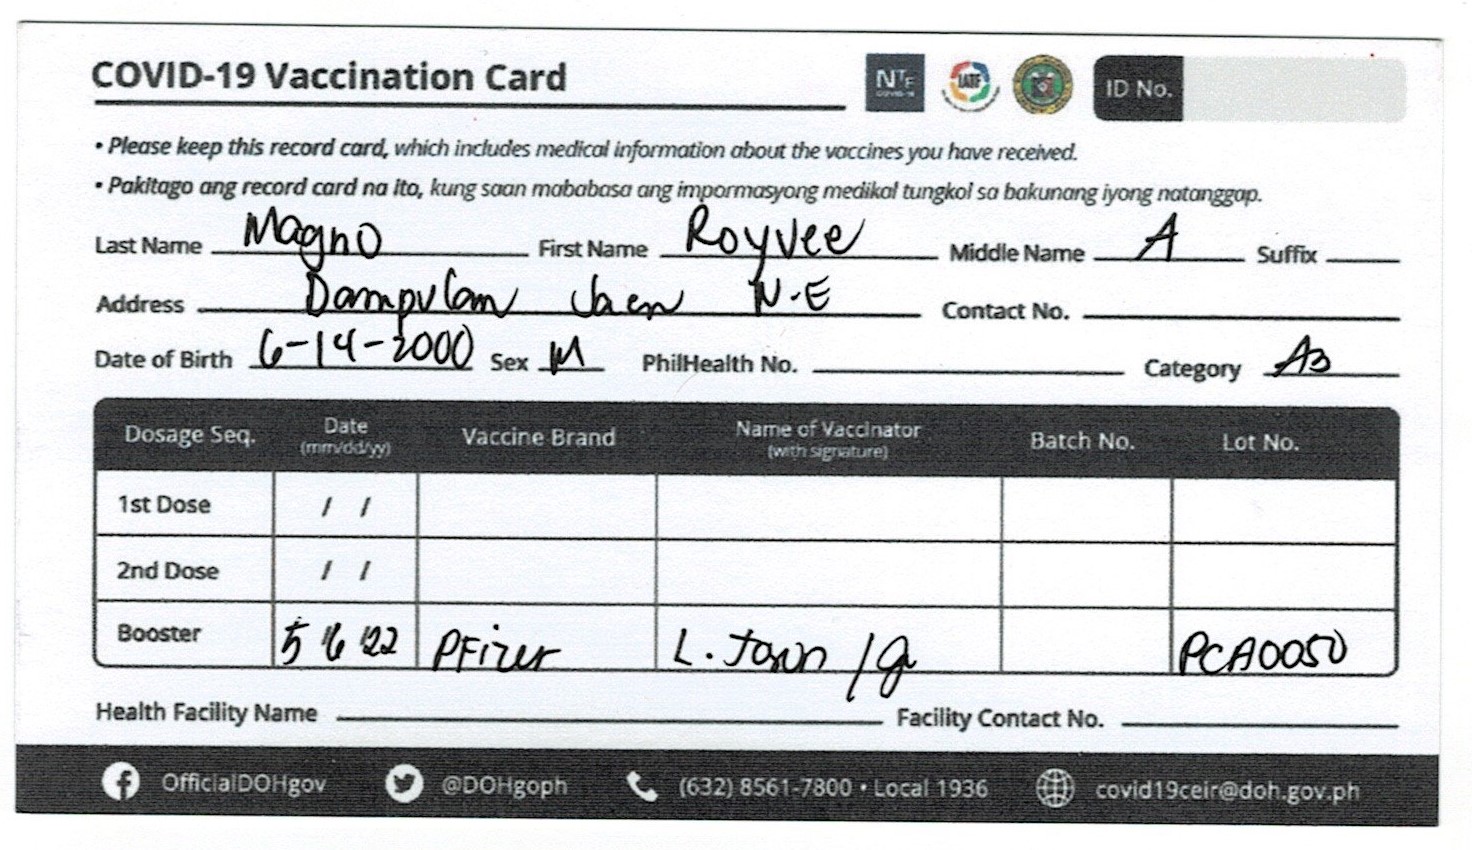 COVID-19 Vaccination Card
NTF COVID-19
IATF
ID No.
• Please keep this record card, which includes medical information about the vaccines you have received.
• Pakitago ang record card na ito, kung saan mababasa ang impormasyong medikal tungkol sa bakunang iyong natanggap.
Last Name Magno First Name Royvee Middle Name A Suffix
Address Dampulan Jaen N.E Contact No.
Date of Birth 6-14-2000 Sex M PhilHealth No. Category A3
Dosage Seq. Date (mm/dd/yy) Vaccine Brand Name of Vaccinator (with signature) Batch No. Lot No.
1st Dose / /
2nd Dose / /
Booster 5 /6 /22 PFizer L. / PCA0050
Health Facility Name Facility Contact No.
OfficialDOHgov @DOHgoph (632) 8561-7800 • Local 1936 covid19ceir@doh.gov.ph